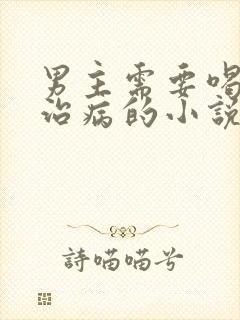 男主需要喝
治病的小說
詩喵喵兮